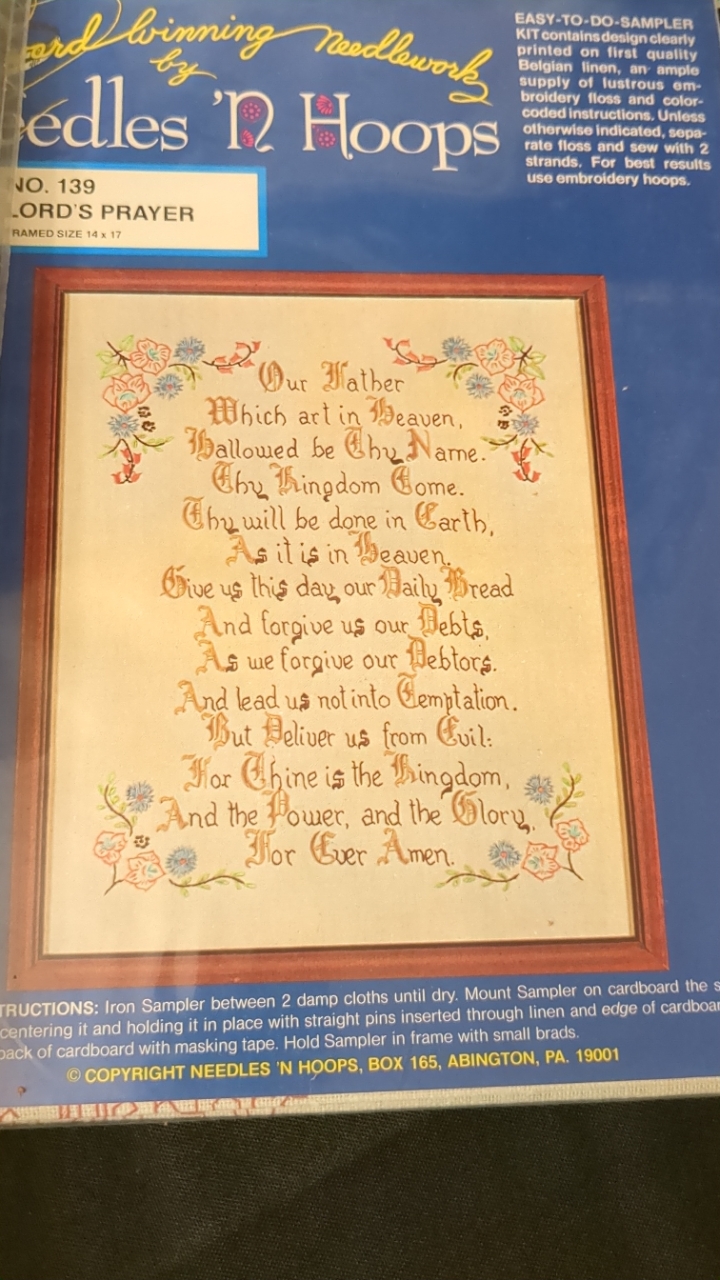 ord Winning Needlework
by
eedles 'N Hoops
EASY-TO-DO-SAMPLER
KIT contains design clearly
printed on first quality
Belgian linen, an ample
supply of lustrous em-
broidery floss and color-
coded instructions. Unless
otherwise indicated, sepa-
rate floss and sew with 2
strands. For best results
use embroidery hoops.
NO. 139
LORD'S PRAYER
RAMED SIZE 14 x 17
Our Father
Which art in Heaven,
Hallowed be Thy Name.
Thy Kingdom Come.
Thy will be done in Earth,
As it is in Heaven.
Give us this day our Daily Bread
And forgive us our Debts,
As we forgive our Debtors.
And lead us not into Temptation.
But Deliver us from Evil:
For Thine is the Kingdom,
And the Power, and the Glory,
For Ever Amen.
TRUCTIONS: Iron Sampler between 2 damp cloths until dry. Mount Sampler on cardboard the s
centering it and holding it in place with straight pins inserted through linen and edge of cardboar
back of cardboard with masking tape. Hold Sampler in frame with small brads.
© COPYRIGHT NEEDLES 'N HOOPS, BOX 165, ABINGTON, PA. 19001